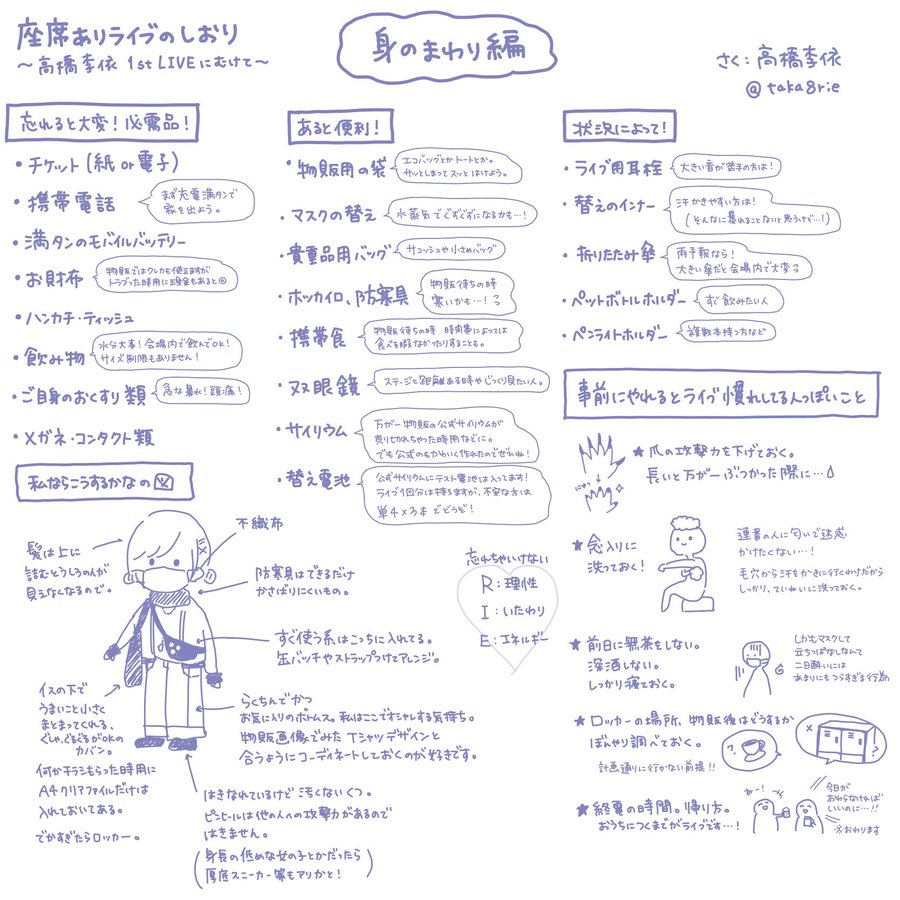 座席ありライブのしおり
〜高橋李依 1st LIVEにむけて〜
身のまわり編
さく：高橋李依
@taka8rie
忘れると大変！必需品！
・チケット（紙 or 電子）
・携帯電話
まず充電満タンで
家を出よう。
・満タンのモバイルバッテリー
・お財布
物販ではクレカも使えますが
トラブった時用に現金もあると◎
・ハンカチ・ティッシュ
・飲み物
水分大事！会場内で飲んでOK！
サイズ制限もありません！
・ご自身のおくすり類
急な鼻水！頭痛！
・メガネ・コンタクト類
あると便利！
・物販用の袋
エコバッグとかトートとか。
サッとしまってスッとはけよう。
・マスクの替え
水蒸気でぐずぐずになるかも…！
・貴重品用バッグ
サコッシュや小さめバッグ
・ホッカイロ、防寒具
物販待ちの時
寒いかも…！
・携帯食
物販待ちの時 時間帯によっては
食べる暇なかったりすることも。
・双眼鏡
ステージと距離ある時やじっくり見たい人。
・サイリウム
万が一物販の公式サイリウムが
売り切れちゃった時用などに。
でも公式のもかわいく作れたのでぜひね！
・替え電池
公式サイリウムにテスト電池は入ってます！
ライブ1回分は持ちますが、不安な方は
単4×3本でどうぞ！
状況によって！
・ライブ用耳栓
大きい音が苦手の方は！
・替えのインナー
汗かきやすい方は！
（そんなに暴れることないと思うけど…！）
・折りたたみ傘
雨予報なら！
大きい傘だと会場内で大変
・ペットボトルホルダー
すぐ飲みたい人
・ペンライトホルダー
複数本持つ方など
事前にやれるとライブ慣れしてる人っぽいこと
★爪の攻撃力を下げておく。
長いと万が一ぶつかった際に…
★念入りに
洗っておく！
連番の人に匂いで迷惑
かけたくない…！
毛穴から汗をかきに行くわけだから
しっかり、ていねいに洗っておく。
★前日に無茶をしない。
深酒しない。
しっかり寝ておく。
しかもマスクして
立ちっぱなしなんて
二日酔いには
あまりにもつらすぎる行為
★ロッカーの場所、物販後はどうするか
ぼんやり調べておく。
計画通りに行かない前提!!
★終電の時間。帰り方。
おうちにつくまでがライブです…！
ねー！
今日が
おわらなければ
いいのに…!!
※おわります
私ならこうするかなの図
髪は上に
詰むとうしろの人が
見えなくなるので。
不織布
防寒具はできるだけ
かさばりにくいもの。
すぐ使う系はこっちに入れてる。
缶バッチやストラップつけてアレンジ。
イスの下で
うまいこと小さく
まとまってくれる、
ぐしゃ、ぐるぐるがOKの
カバン。
何かチラシもらった時用に
A4クリアファイルだけは
入れておいてある。
でかすぎたらロッカー。
らくちんでかつ
お気に入りのボトムス。私はここでオシャレする気持ち。
物販画像でみたTシャツデザインと
合うようにコーディネートしておくのが好きです。
はきなれているけど汚くないくつ。
ピンヒールは他の人への攻撃力があるので
はきません。
（身長の低めな女の子とかだったら
厚底スニーカー等もアリかと！）
忘れちゃいけない
R：理性
I：いたわり
E：エネルギー